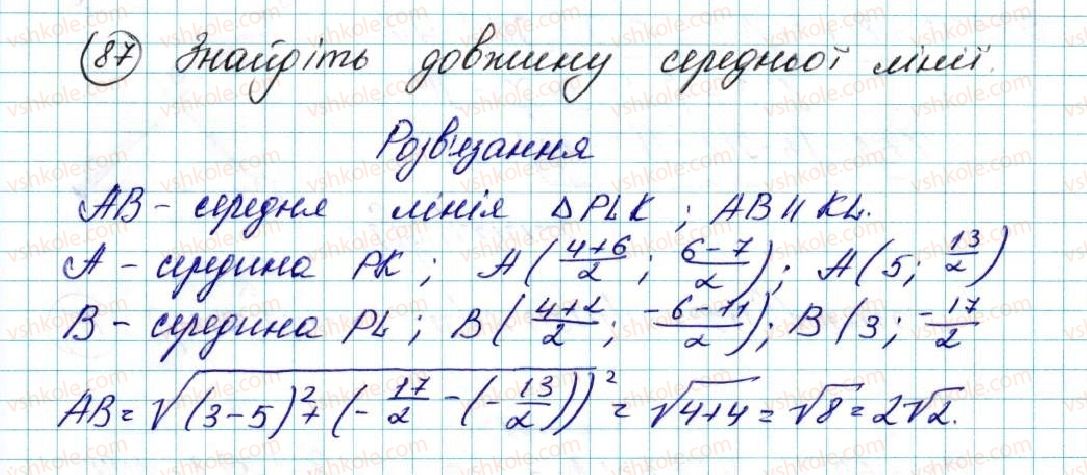 87 Знайдіть довжину середньої лінії.
Розв'язання
AB - середня лінія △PLK ; AB || KL.
A - середина PK ; A (4+6/2 ; 6-7/2) ; A (5 ; 13/2)
B - середина PL ; B (4+2/2 ; -6-11/2) ; B (3 ; -17/2
AB = √(3-5)² + (-17/2 - (-13/2))² = √4+4 = √8 = 2√2.